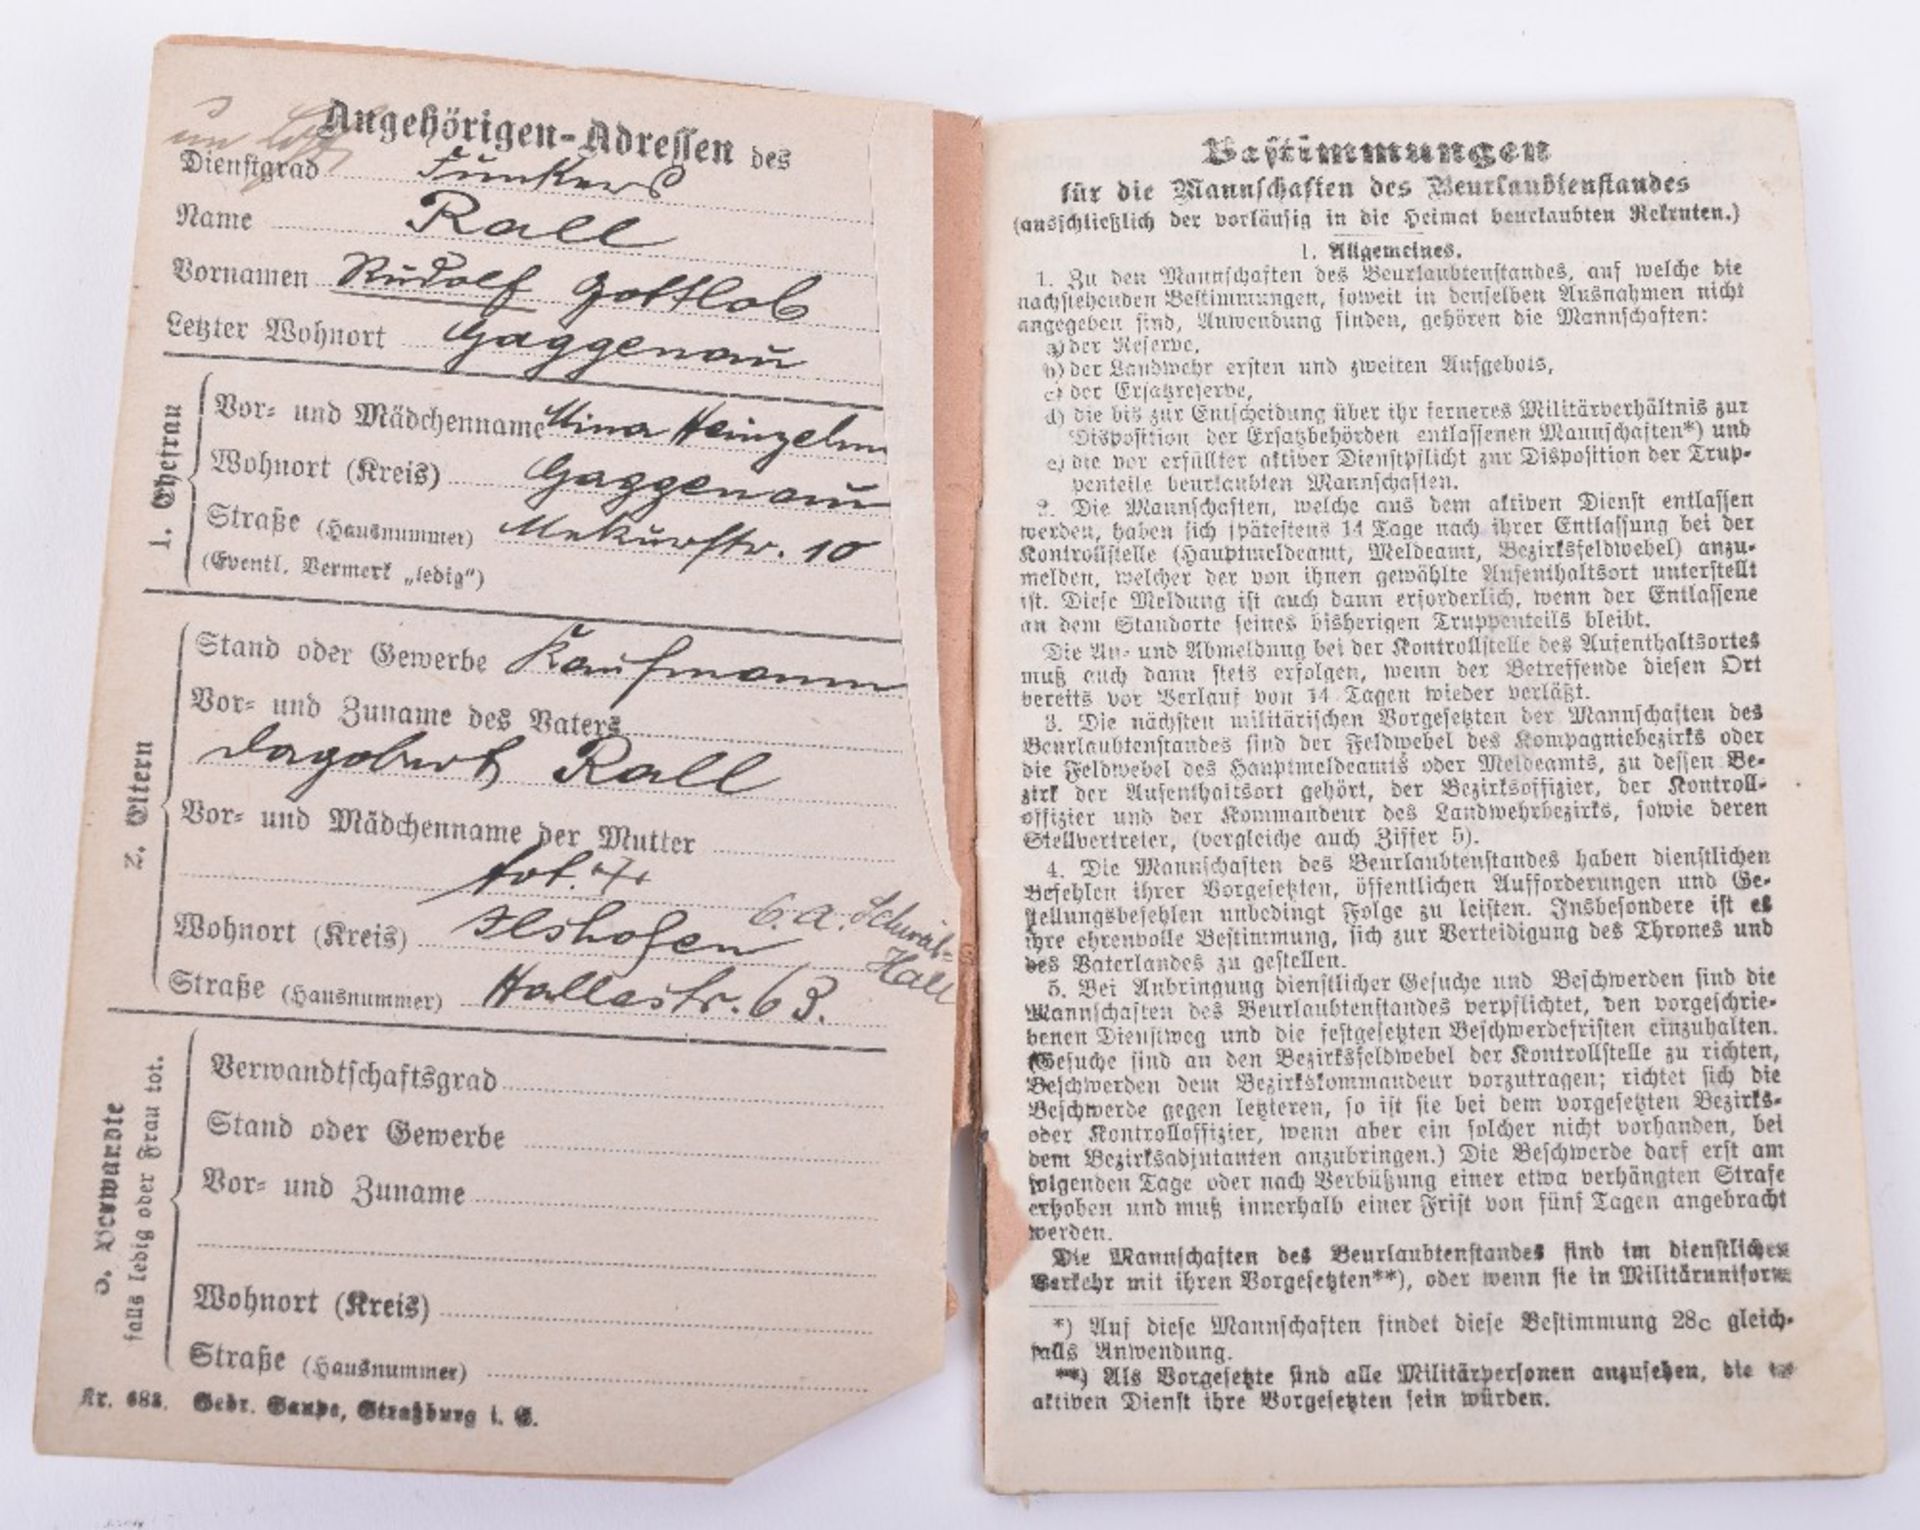 Angehörigen-Adressen des
Dienstgrad Funkers
Name Rall
Vornamen Rudolf Gottlob
Letzter Wohnort Gaggenau
1. Ehefrau
Vor- und Mädchenname Mina Heinzelm
Wohnort (Kreis) Gaggenau
Straße (Hausnummer) Mekurstr. 10
(Eventl. Vermerk „ledig“)
2. Eltern
Stand oder Gewerbe Kaufmann
Vor- und Zuname des Vaters
Dagobert Rall
Vor- und Mädchenname der Mutter
tot.
Wohnort (Kreis) Ilshofen O.A. Schwäb-
Hall
Straße (Hausnummer) Hallestr. 63.
3. Verwandte
falls ledig oder Frau tot.
Verwandtschaftsgrad
Stand oder Gewerbe
Vor- und Zuname
Wohnort (Kreis)
Straße (Hausnummer)
Nr. Gedr. Straßburg i. E.
Bestimmungen
für die Mannschaften des Beurlaubtenstandes
(ausschließlich der vorläufig in die Heimat beurlaubten Rekruten.)
1. Allgemeines.
1. Zu den Mannschaften des Beurlaubtenstandes, auf welche die
nachstehenden Bestimmungen, soweit in denselben Ausnahmen nicht
angegeben sind, Anwendung finden, gehören die Mannschaften:
a) der Reserve,
b) der Landwehr ersten und zweiten Aufgebots,
c) der Ersatzreserve,
d) die bis zur Entscheidung über ihr ferneres Militärverhältnis zur
Disposition der Ersatzbehörden entlassenen Mannschaften*) und
e) die vor erfüllter aktiver Dienstpflicht zur Disposition der Trup-
penteile beurlaubten Mannschaften.
2. Die Mannschaften, welche aus dem aktiven Dienst entlassen
werden, haben sich spätestens 14 Tage nach ihrer Entlassung bei der
Kontrollstelle (Hauptmeldeamt, Meldeamt, Bezirksfeldwebel) anzu-
melden, welcher der von ihnen gewählte Aufenthaltsort unterstellt
ist. Diese Meldung ist auch dann erforderlich, wenn der Entlassene
an dem Standorte seines bisherigen Truppenteils bleibt.
Die An- und Abmeldung bei der Kontrollstelle des Aufenthaltsortes
muß auch dann stets erfolgen, wenn der Betreffende diesen Ort
bereits vor Verlauf von 14 Tagen wieder verläßt.
3. Die nächsten militärischen Vorgesetzten der Mannschaften des
Beurlaubtenstandes sind der Feldwebel des Kompagniebezirks oder
die Feldwebel des Hauptmeldeamts oder Meldeamts, zu dessen Be-
zirk der Aufenthaltsort gehört, der Bezirksoffizier, der Kontroll-
offizier und der Kommandeur des Landwehrbezirks, sowie deren
Stellvertreter, (vergleiche auch Ziffer 5).
4. Die Mannschaften des Beurlaubtenstandes haben dienstlichen
Befehlen ihrer Vorgesetzten, öffentlichen Aufforderungen und Ge-
stellungsbefehlen unbedingt Folge zu leisten. Insbesondere ist es
ihre ehrenvolle Bestimmung, sich zur Verteidigung des Thrones und
des Vaterlandes zu gestellen.
5. Bei Anbringung dienstlicher Gesuche und Beschwerden sind die
Mannschaften des Beurlaubtenstandes verpflichtet, den vorgeschrie-
benen Dienstweg und die festgesetzten Beschwerdefristen einzuhalten.
(Gesuche sind an den Bezirksfeldwebel der Kontrollstelle zu richten,
Beschwerden dem Bezirkskommandeur vorzutragen; richtet sich die
Beschwerde gegen letzteren, so ist sie bei dem vorgesetzten Bezirks-
oder Kontrolloffizier, wenn aber ein solcher nicht vorhanden, bei
dem Bezirksadjutanten anzubringen.) Die Beschwerde darf erst am
folgenden Tage oder nach Verbüßung einer etwa verhängten Strafe
erhoben und muß innerhalb einer Frist von fünf Tagen angebracht
werden.
Die Mannschaften des Beurlaubtenstandes sind im dienstlichen
Verkehr mit ihren Vorgesetzten**), oder wenn sie in Militäruniform
*) Auf diese Mannschaften findet diese Bestimmung 28c gleich-
falls Anwendung.
**) Als Vorgesetzte sind alle Militärpersonen anzusehen, die im
aktiven Dienst ihre Vorgesetzten sein würden.